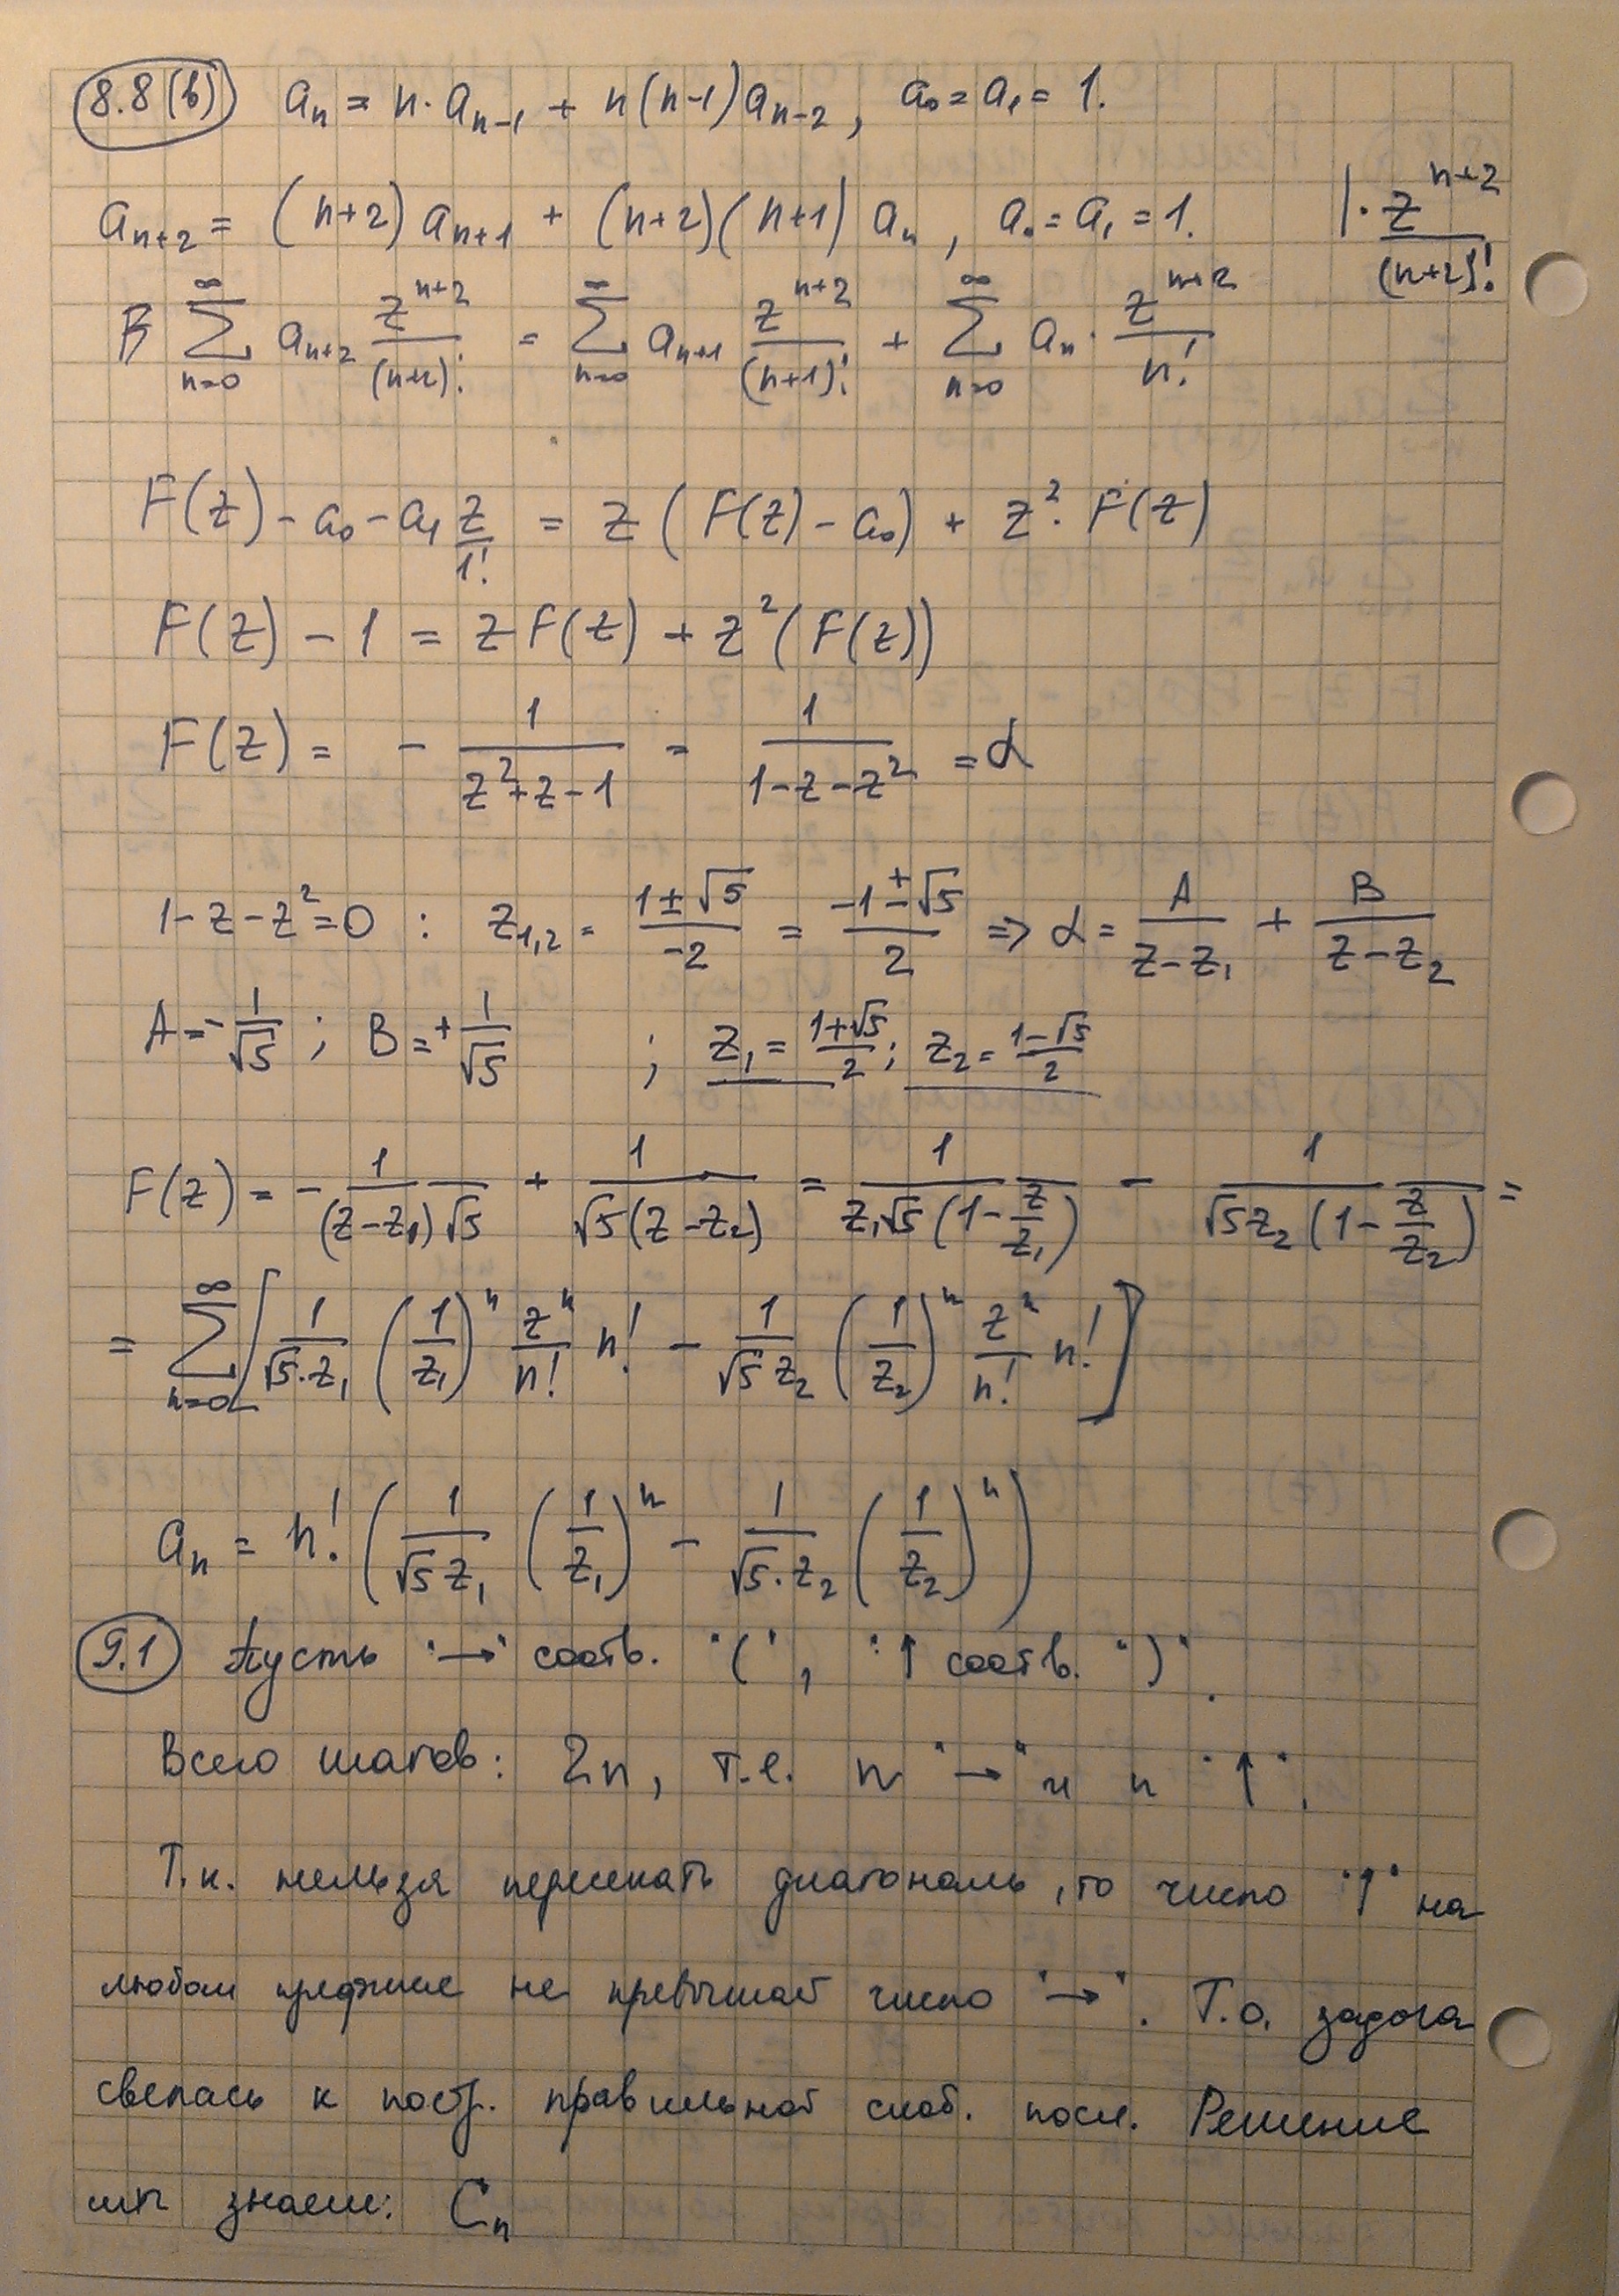 8.8(b) aₙ = n · aₙ₋₁ + n(n-1)aₙ₋₂, a₀ = a₁ = 1.
aₙ₊₂ = (n+2) aₙ₊₁ + (n+2)(n+1) aₙ, a₀ = a₁ = 1. | · z^(n+2)/(n+2)!
∑_{n=0}^∞ aₙ₊₂ z^(n+2)/(n+2)! = ∑_{n=0}^∞ aₙ₊₁ z^(n+2)/(n+1)! + ∑_{n=0}^∞ aₙ · z^(n+2)/n!
F(z) - a₀ - a₁ z/1! = z (F(z) - a₀) + z² · F(z)
F(z) - 1 = z F(z) + z² (F(z))
F(z) = - 1/(z²+z-1) = 1/(1-z-z²) = α
1-z-z²=0 : z₁,₂ = (1±√5)/(-2) = (-1±√5)/2 => α = A/(z-z₁) + B/(z-z₂)
A = -1/√5 ; B = +1/√5 ; z₁ = (1+√5)/2 ; z₂ = (1-√5)/2
F(z) = - 1/((z-z₁)√5) + 1/(√5(z-z₂)) = 1/(z₁√5(1-z/z₁)) - 1/(√5z₂(1-z/z₂)) =
= ∑_{n=0}^∞ [1/(√5·z₁) (1/z₁)ⁿ zⁿ/n! n! - 1/(√5 z₂) (1/z₂)ⁿ zⁿ/n! n!]
aₙ = n! (1/(√5 z₁) (1/z₁)ⁿ - 1/(√5·z₂) (1/z₂)ⁿ)
9.1 Пусть "→" соотв. "(", "↑ соотв. ")".
Всего шагов: 2n, т.е. n "→" и n "↑".
Т.к. нельзя пересекать диагональ, то число "↑" на
любом префиксе не превышает число "→". Т.о. задача
свелась к постр. правильной скоб. посл. Решение
мы знаем: Cₙ